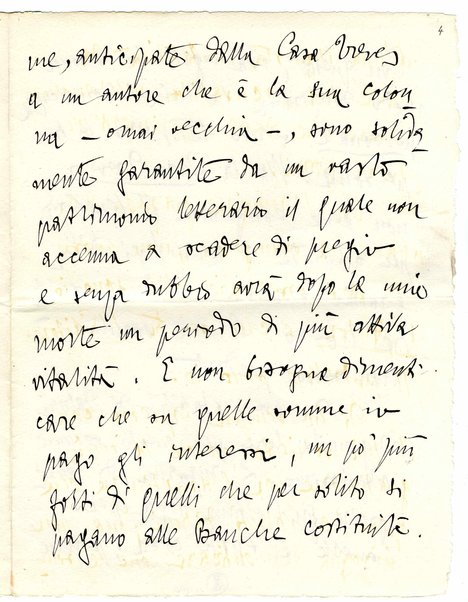 4
me, anticipate dalla Casa Treves
a un autore che è la sua colon
na – omai vecchia –, sono solida
mente garantite da un vasto
patrimonio letterario il quale non
accenna a scadere di pregio
e senza dubbio avrà dopo la mia
morte un periodo di più attiva
vitalità. E non bisogna dimenti
care che su quelle somme io
pago gli interessi, un po' più
forti di quelli che per solito si
pagano alle Banche costituite.